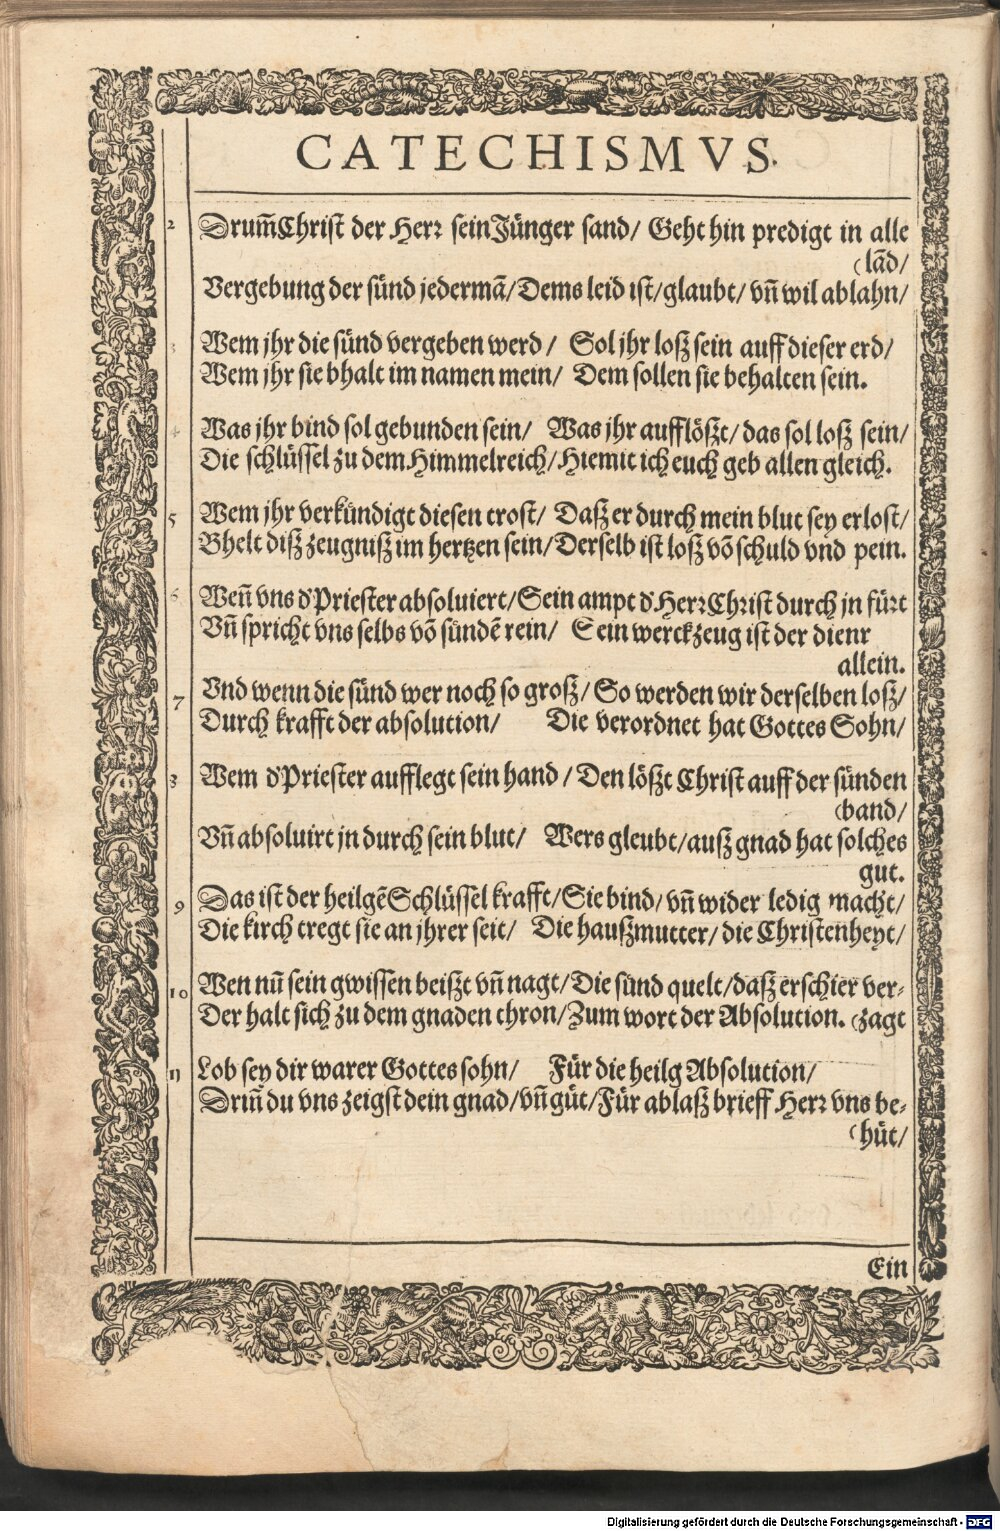 CATECHISMVS.
2 Drum̃ Christ der Herr sein Jünger sand/ Geht hin predigt in alle
(lãd/
Vergebung der sünd jedermã/ Dems leid ist/ glaubt/ vñ wil ablahn/
3 Wem jhr die sünd vergeben werd/ Sol jhr loß sein auff dieser erd/
Wem jhr sie bhalt im namen mein/ Dem sollen sie behalten sein.
4 Was jhr bind sol gebunden sein/ Was jhr aufflößt/ das sol loß sein/
Die schlüssel zu dem Himmelreich/ Hiemit ich euch geb allen gleich.
5 Wem jhr verkündigt diesen trost/ Daß er durch mein blut sey erlost/
Bhelt diß zeugniß im hertzen sein/ Derselb ist loß võ schuld vnd pein.
6 Weñ vns d' Priester absoluiert/ Sein ampt d' Herr Christ durch jn fürt
Vñ spricht vns selbs võ sündẽ rein/ Sein werckzeug ist der dienr
allein.
7 Vnd wenn die sünd wer noch so groß/ So werden wir derselben loß/
Durch krafft der absolution/ Die verordnet hat Gottes Sohn/
8 Wem d' Priester aufflegt sein hand/ Den lößt Christ auff der sünden
(band/
Vñ absoluirt jn durch sein blut/ Wers gleubt/ auß gnad hat solches
gut.
9 Das ist der heilgẽ Schlüssel krafft/ Sie bind/ vñ wider ledig macht/
Die kirch tregt sie an jhrer seit/ Die haußmutter/ die Christenheyt/
10 Wen nũ sein gwissen beißt vñ nagt/ Die sünd quelt/ daß er schier ver-
Der halt sich zu dem gnaden thron/ Zum wort der Absolution. (zagt
11 Lob sey dir warer Gottes sohn/ Für die heilg Absolution/
Driñ du vns zeigst dein gnad/ vñ güt/ Für ablaß brieff Herr vns be-
(hüt/
Ein
Digitalisierung gefördert durch die Deutsche Forschungsgemeinschaft - DFG